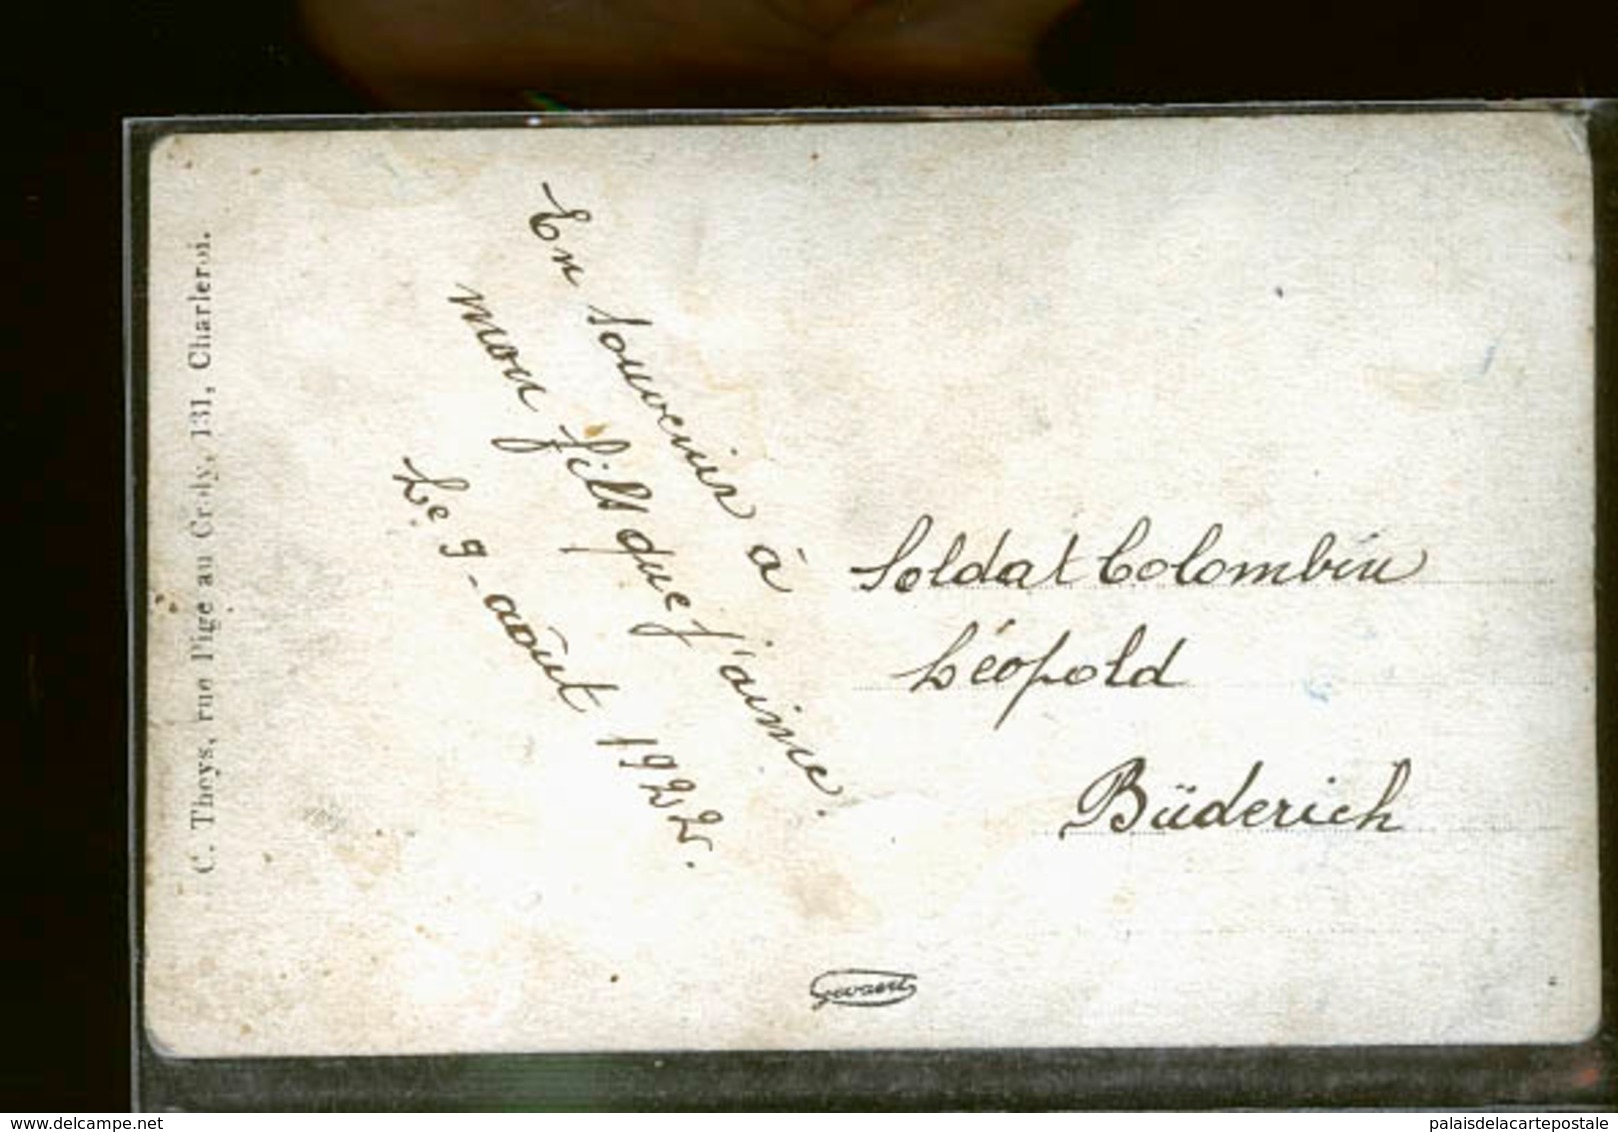 En souvenir à
mon fils que j'aime.
Le 9-août 1922.
Soldat Colombin
Léopold
Büderich
C. Theys, rue Pige au Croly, 131, Charleroi.
Gevaert
website: delcampe.net
palaisdelacartepostale